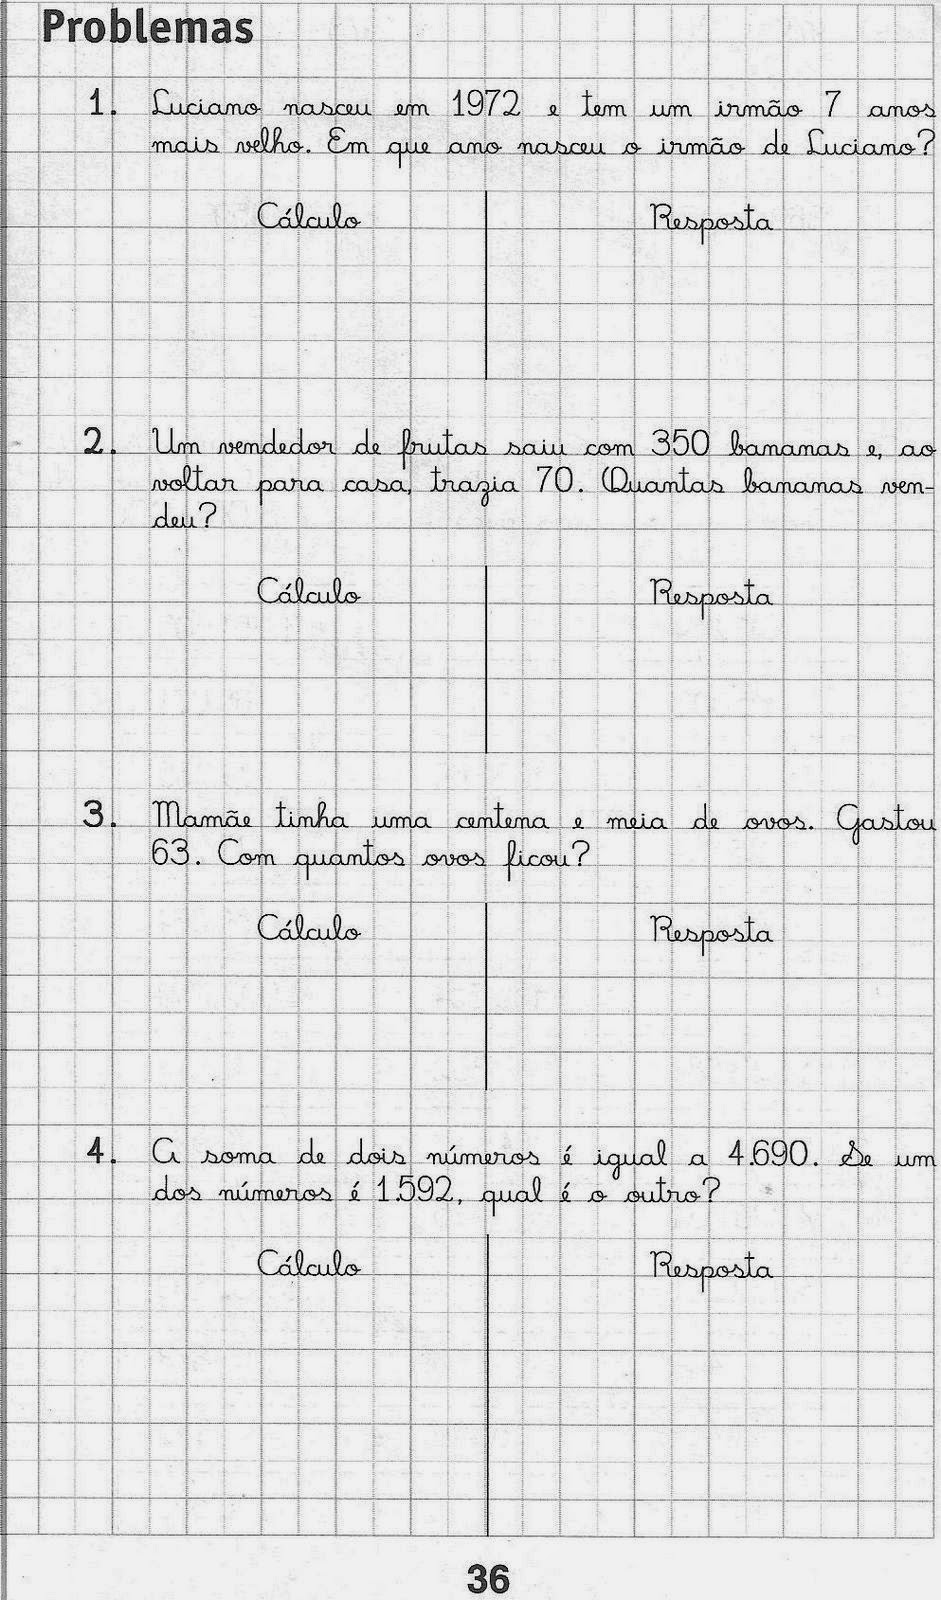 Problemas
1. Luciano nasceu em 1972 e tem um irmão 7 anos
mais velho. Em que ano nasceu o irmão de Luciano?
Cálculo Resposta
2. Um vendedor de frutas saiu com 350 bananas e, ao
voltar para casa, trazia 70. Quantas bananas ven-
deu?
Cálculo Resposta
3. Mamãe tinha uma centena e meia de ovos. Gastou
63. Com quantos ovos ficou?
Cálculo Resposta
4. A soma de dois números é igual a 4.690. Se um
dos números é 1.592, qual é o outro?
Cálculo Resposta
36